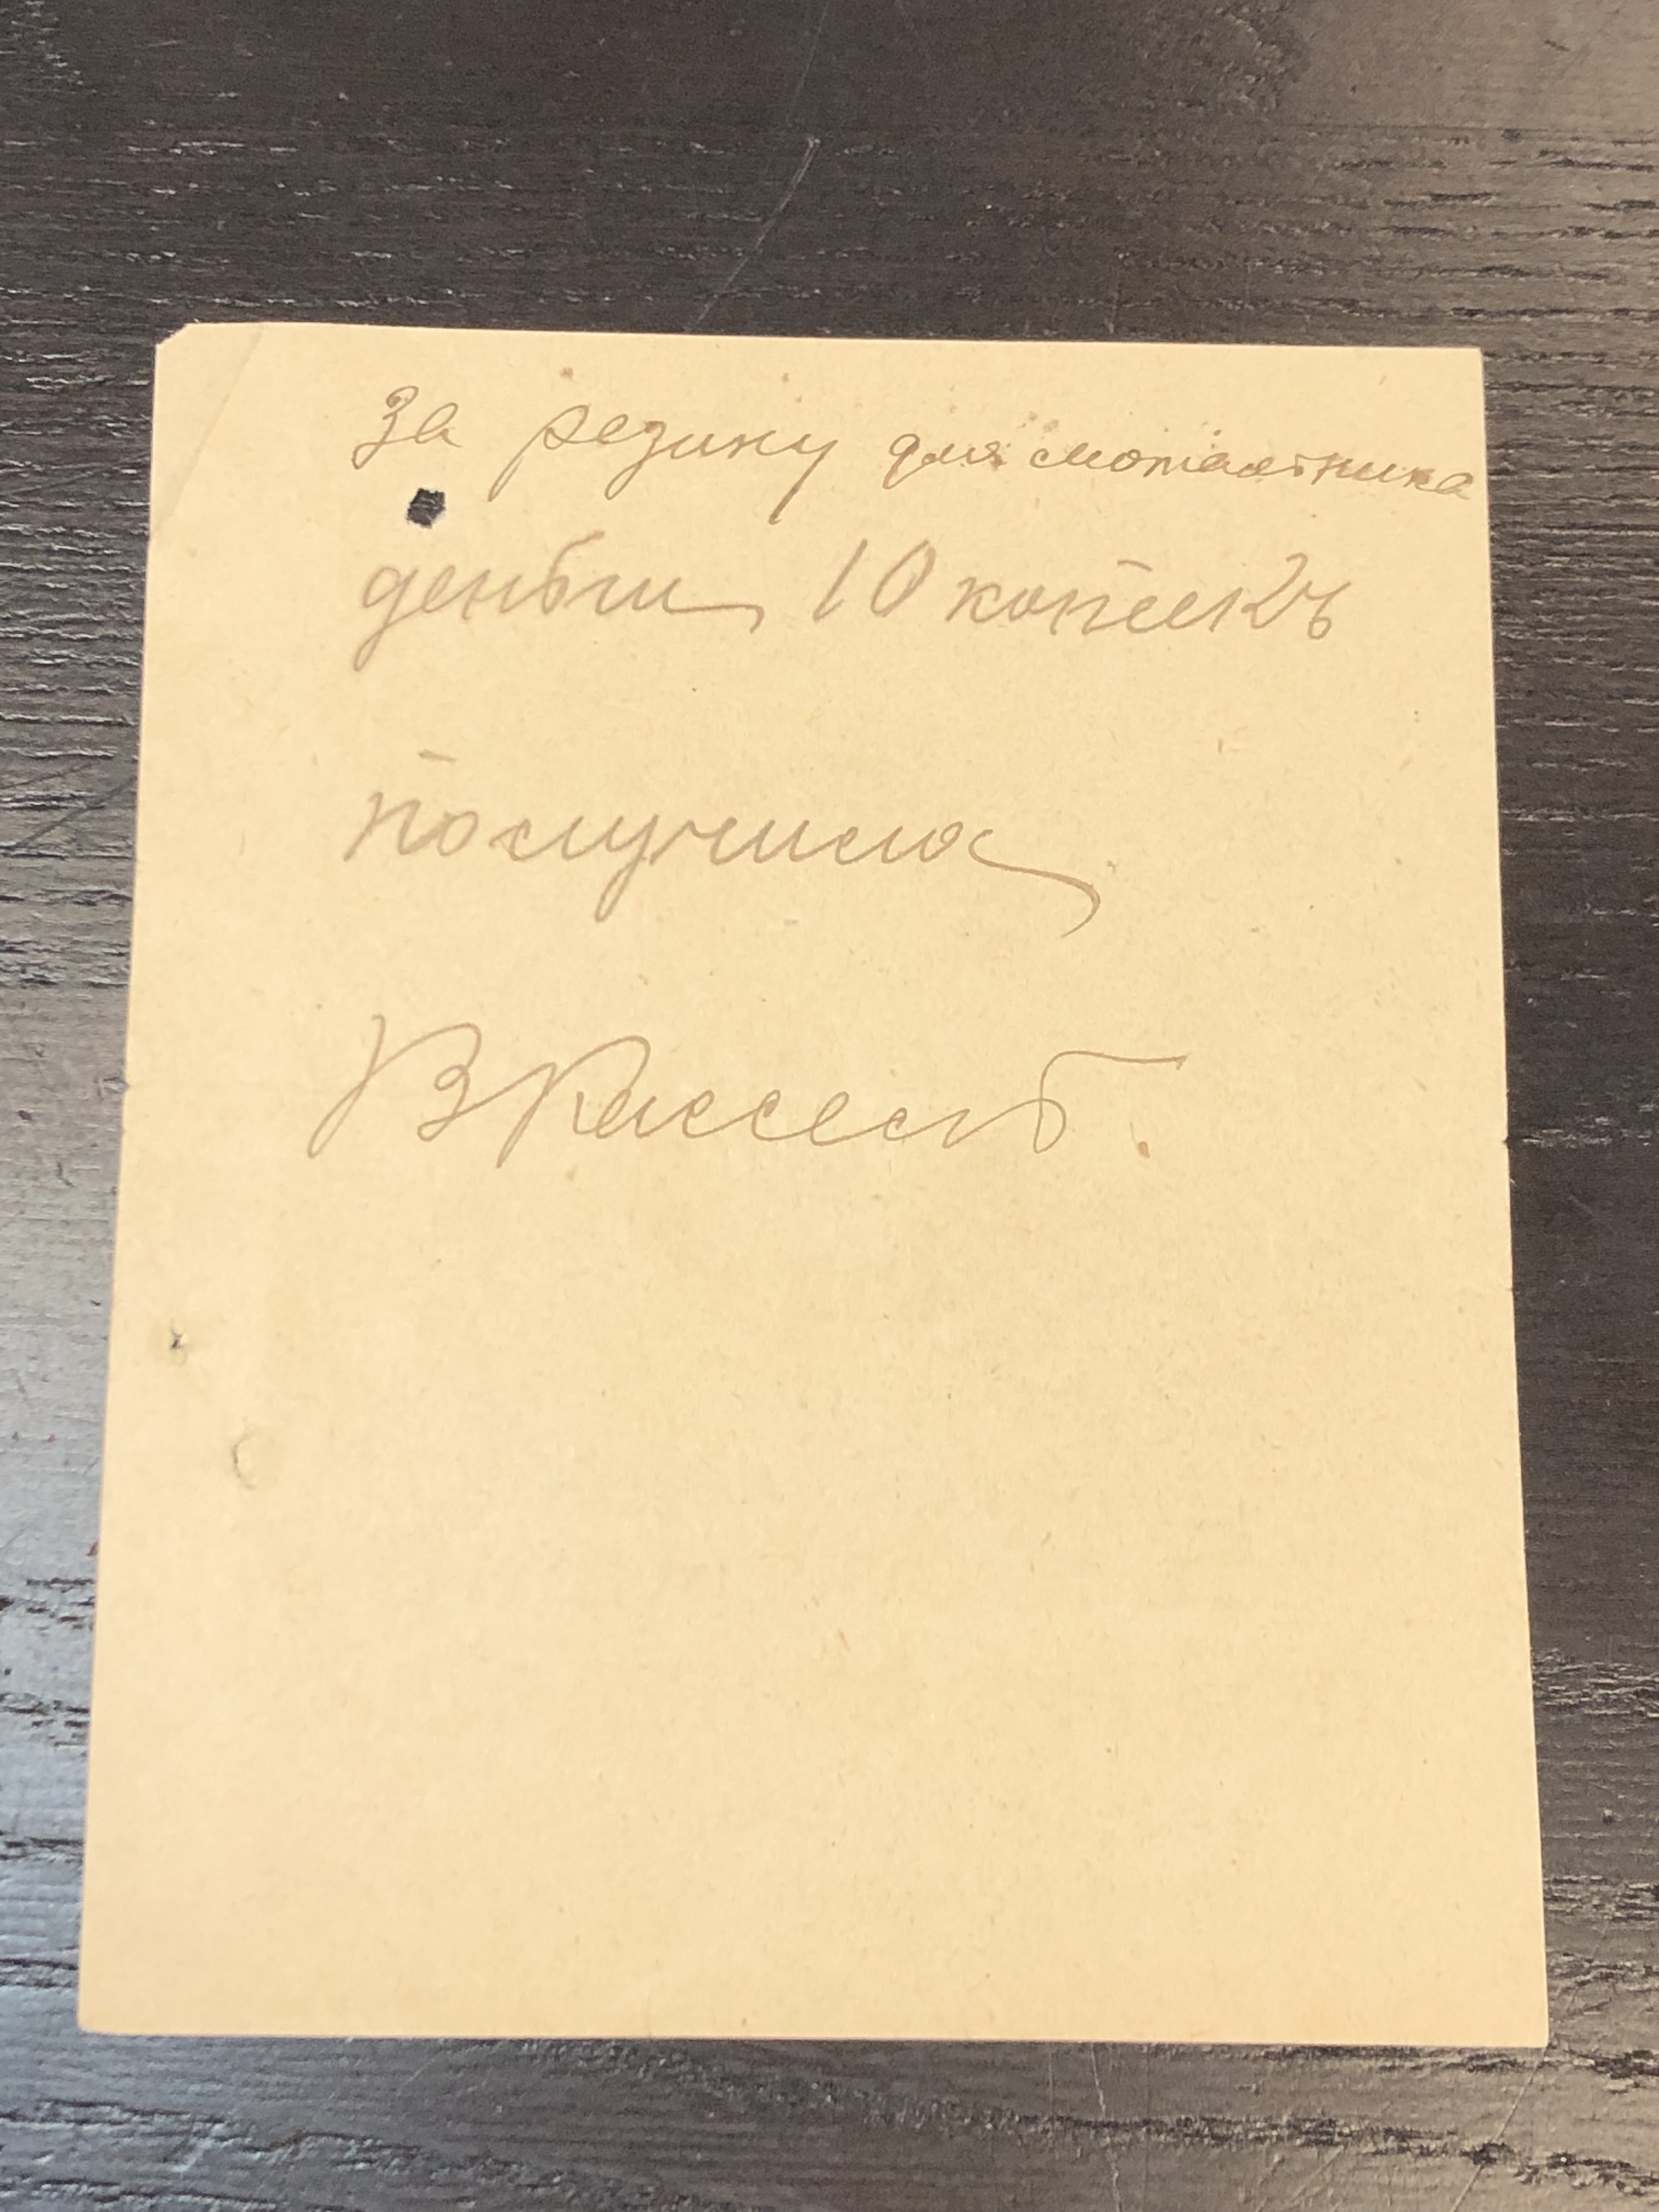 За резину для мотальника
деньги 10 копеекъ
получила
В Кассель.